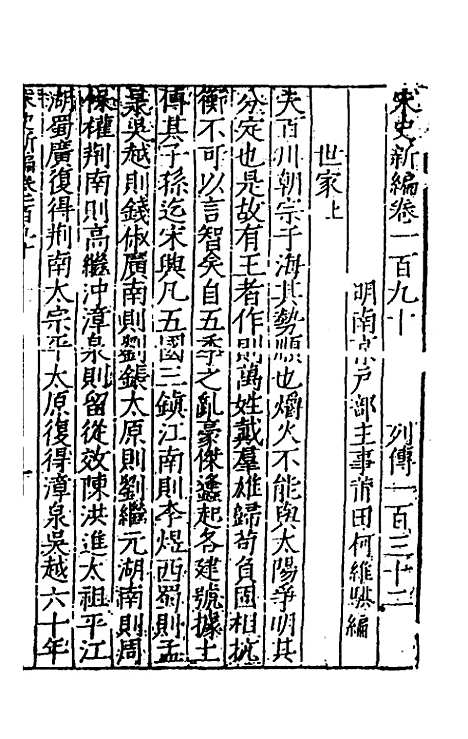 宋史新編卷一百九十 列傳一百三十二
明南京戶部主事莆田柯維騏編
世家上
夫百川朝宗于海其勢順也爝火不能與太陽爭明其
分定也是故有王者作則萬姓戴羣雄歸苟負固相抗
衡不可以言智矣自五季之亂豪傑蠭起各建號據土
傳其子孫迄宋興凡五國三鎮江南則李煜西蜀則孟
昶吳越則錢俶廣南則劉鋹太原則劉繼元湖南則周
保權荆南則高繼冲漳泉則留從效陳洪進太祖平江
湖蜀廣復得荆南太宗平太原復得漳泉吳越六十年
宋史新編卷一百九十